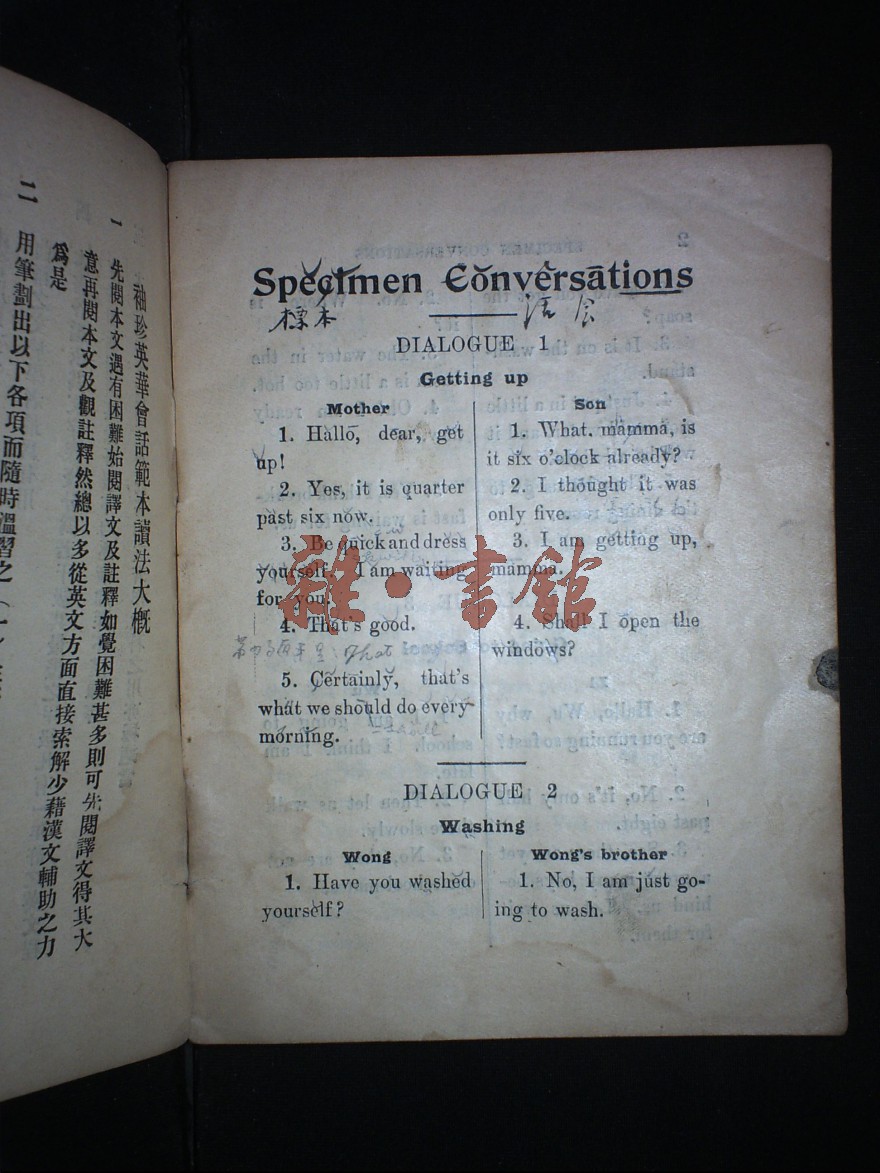 袖珍英華會話範本讀法大概
一 先閱本文遇有困難始閱譯文及註釋如覺困難甚多則可先閱譯文得其大
意再閱本文及觀註釋然總以多從英文方面直接索解少藉漢文輔助之力
爲是
二 用筆劃出以下各項而隨時溫習之
Specimen Conversations
標本 話 会
DIALOGUE 1
Getting up
Mother
1. Hallo, dear, get
up!
2. Yes, it is quarter
past six now.
3. Be quick and dress
yourself. I am waiting
for you.
4. That's good.
That
5. Certainly, that's
what we should do every-
morning.
Son
1. What, mamma, is
it six o'clock already?
2. I thought it was
only five.
3. I am getting up,
mamma.
4. Shall I open the
windows?
DIALOGUE 2
Washing
Wong
1. Have you washed
yourself?
Wong's brother
1. No, I am just go-
ing to wash.
雜·書館